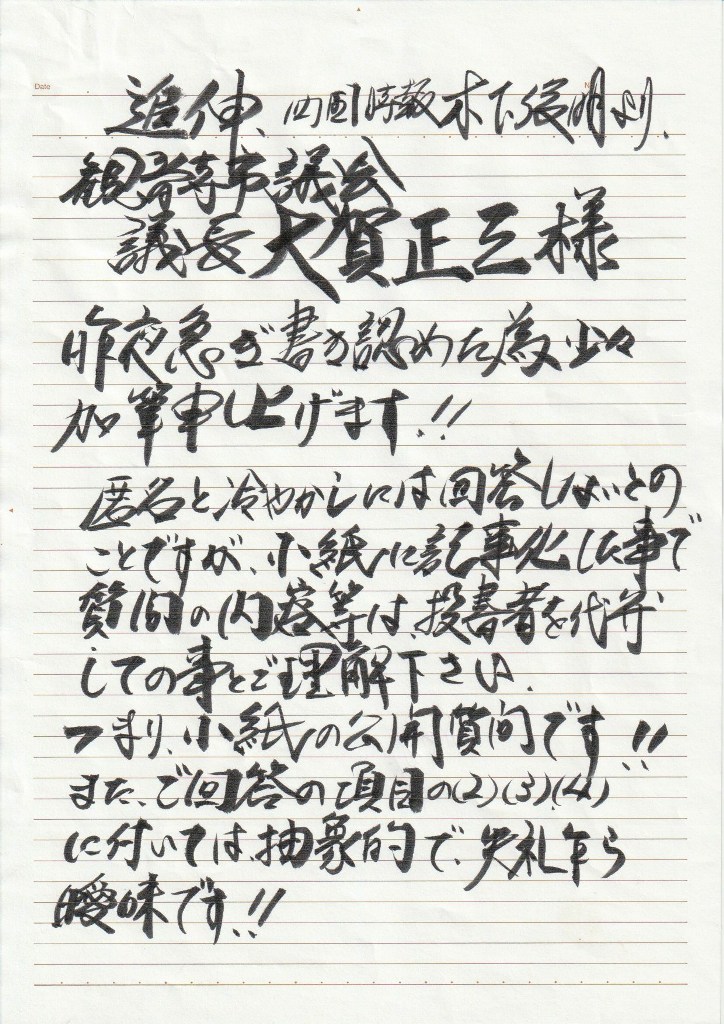 Date
追伸、四国時報木下俊明より、
観音寺市議会
議長大賀正三様
昨夜急ぎ書き認めた為、少々
加筆申し上げます!!
匿名と冷やかしには回答しないとの
ことですが、小紙に記事化した事で
質問の内容等は、投書者を代弁
しての事とご理解下さい。
つまり、小紙の公開質問です!!
また、ご回答の項目の(2)(3)(4)
に付いては、抽象的で、失礼乍ら
曖昧です!!